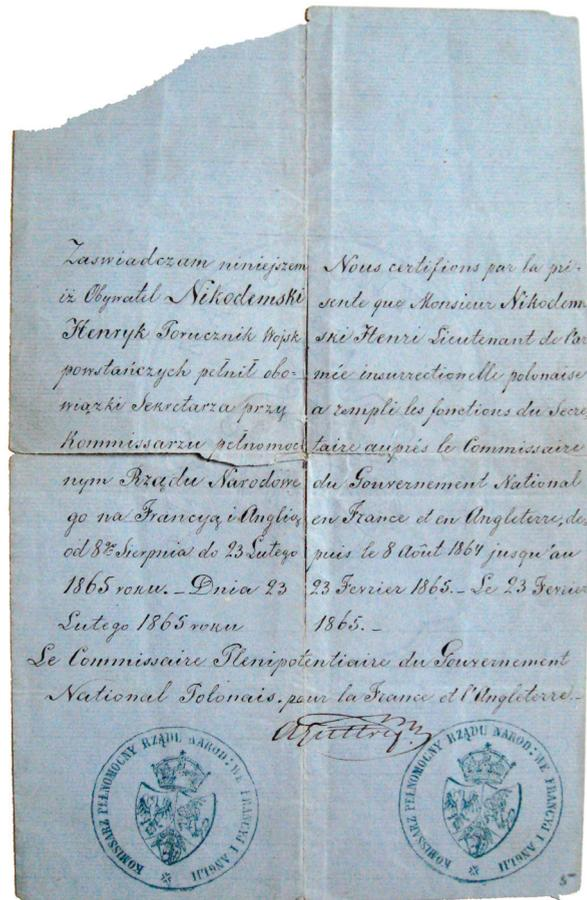 Zaswiadczam niniejszem
iż Obywatel Nikodemski
Henryk Porucznik Wojsk
powstańczych pełnił obo-
wiązki Sekretarza przy
Kommissarzu pełnomoc
nym Rządu Narodowe
go na Francyą i Anglią
od 8go Sierpnia do 23 Lutego
1865 roku. _ Dnia 23
Lutego 1865 roku
Nous certifions par la pré-
sente que Monsieur Nikodem
ski Henri Lieutenant de l'ar
mée insurrectionelle polonaise
a rempli les fonctions du Secré
taire auprés le Commissaire
du Gouvernement National
en France et en Angleterre, de
puis le 8 Août 1864 jusqu'au
23 Fevrier 1865. _ Le 23 Fevrier
1865. _
Le Commissaire Plenipotentiaire du Gouvernement
National Polonais. pour la France et l'Angleterre.
KOMISSARZ PEŁNOMOCNY RZĄDU NAROD: WE FRANCYI I ANGLII
KOMISSARZ PEŁNOMOCNY RZĄDU NAROD: WE FRANCYI I ANGLII